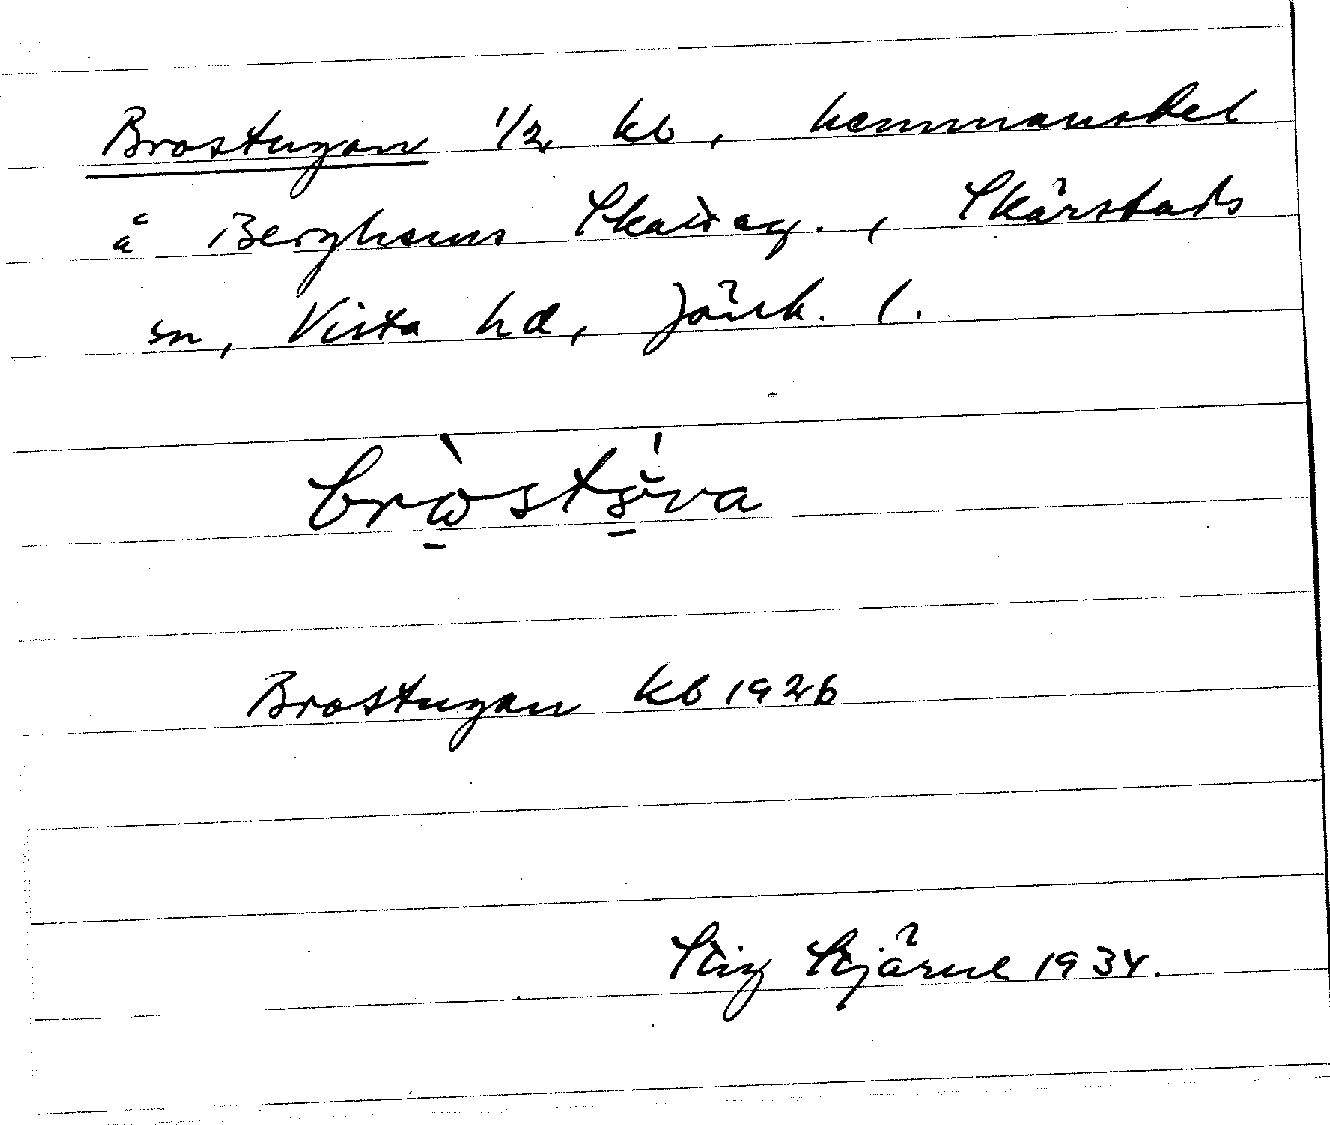 Brostugan 1/2 kb, hemmansdel
å Berghems Skatteg., Skärstads
sn, Vista hd, Jönk. l.
Brostugan kb 1926
Stig Stjärne 1934.